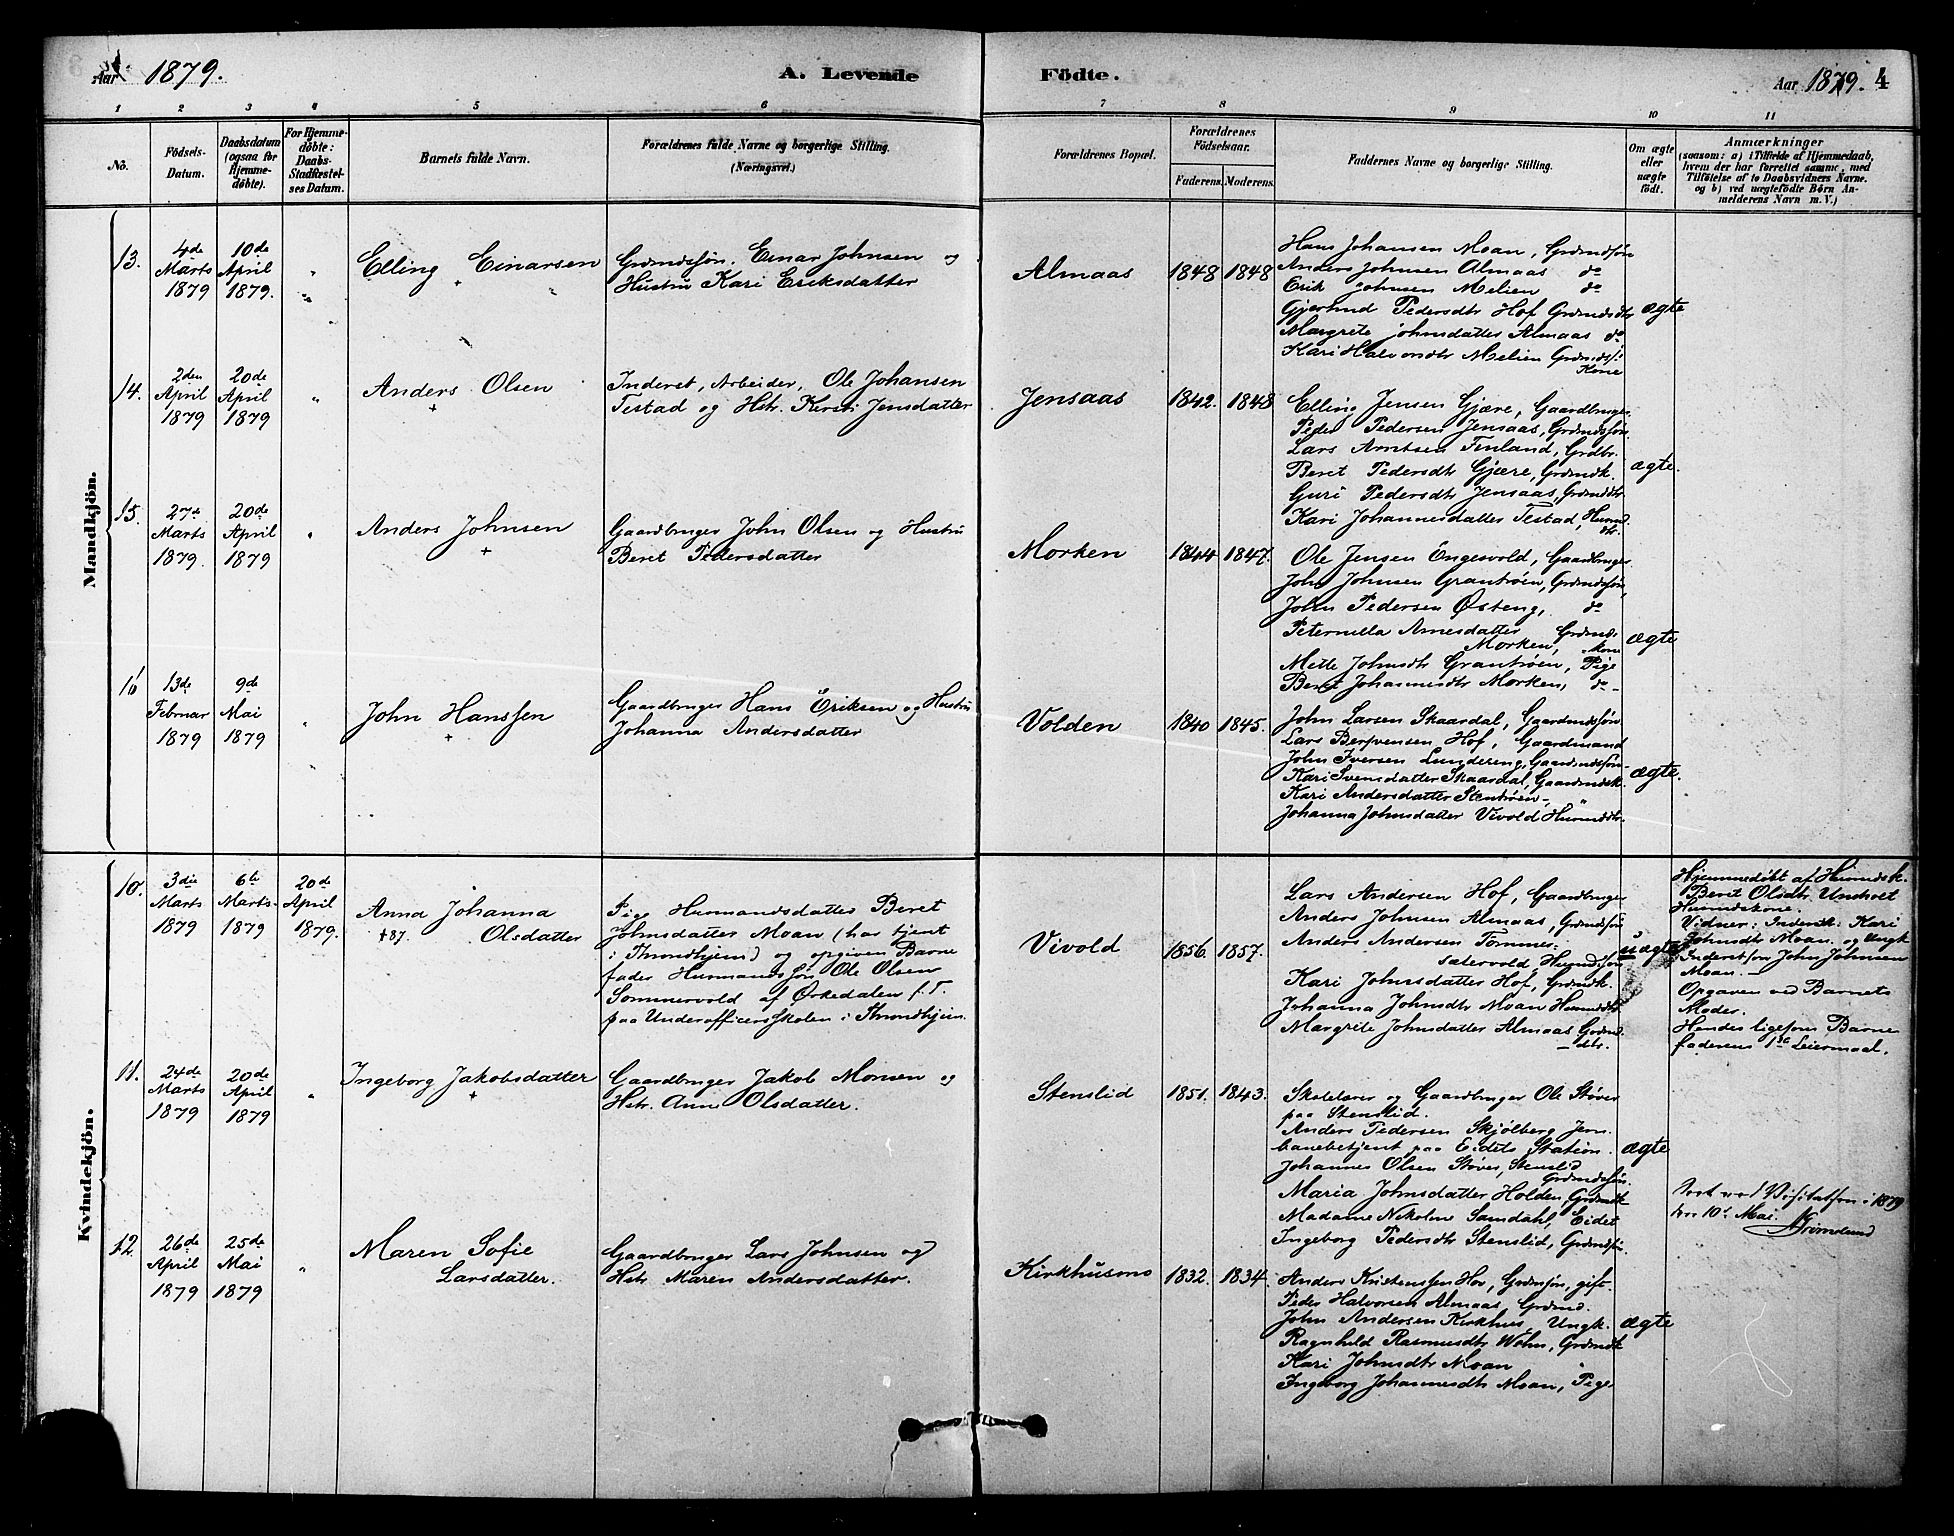 Aar 1879.
A. Levende
Födte.
Aar 1879. 4
1 2 3 4 5 6 7 8 9 10 11
No.
Födsels-
Datum.
Daabsdatum
(ogsaa for
Hjemme-
døbte).
For Hjemme-
døbte:
Daabs-
Stadfæstel-
ses Datum.
Barnets fulde Navn.
Forældrenes fulde Navne og borgerlige Stilling.
(Næringsvei.)
Forældrenes Bopæl.
Forældrenes
Födselsaar.
Faderens.
Moderens.
Faddernes Navne og borgerlige Stilling.
Om ægte
eller
uægte
födt.
Anmærkninger
(saasom: a) i Tilfælde af Hjemmedaab,
hvem der har forrettet samme, med
Tilføielse af to Daabsvidners Navne.
og b) ved uægtefödte Børn An-
melderens Navn m. V.)
Mandkjön.
13.
4de
Marts
1879
10de
April
1879.
"
Elling Einarsen
Grdmdssøn. Einar Johnsen og
Hustru Kari Eriksdatter
Almaas
1848
1848
Hans Johansen Moan, Grdmdsøn
Anders Johnsen Almaas do
Erik Johnsen Melien do
Gjertrud Pedersdtr Hof Grdmdsdtr
Margrete Johnsdatter Almaas do
Kari Halvorsdtr Melien Grdmds
Kone
ægte
14.
2den
April
1879
20de
April
1879
"
Anders Olsen
Inderst, Arbeider, Ole Johansen
Testad og Hstr. Kirsti Jensdatter
Jensaas
1842.
1848
Elling Jensen Gjære, Gaardbruger
Peder Pedersen Jensaas, Grdmdsøn
Lars Arntsen Finland, Grdbr.
Beret Pedersdtr Gjære, Grdmdk.
Guri Pedersdtr Jensaas, Grdmddtr
Kari Johannesdatter Testad, Husmd.
dtr.
ægte.
15.
27de
Marts
1879.
20de
April
1879
"
Anders Johnsen
Gaardbruger John Olsen og Hustru
Beret Pedersdatter
Morken
1844
1847.
Ole Jensen Engesvold, Gaardbruger
John Johnsen Grantrøen, Grdmdsøn,
John Pedersen Østeng, do
Peternella Arnesdatter
Morken, Grdmds
kone
Mette Johnsdtr Grantrøen, Pige
Beret Johannesdtr Morken, do
ægte
16
13de
Februar
1879
9de
Mai
1879
"
John Hanssen
Gaardbruger Hans Eriksen og Hustru
Johanna Andersdatter
Volden
1840
1845.
John Larsen Skaardal, Gaardmdssøn
Lars Bersvensen Hof, Gaardmand
John Iversen Lundereng, Gaardmdsøn
Kari Svensdatter Skaardal, Gaardmdsk.
Kari Andersdatter Stentrøen "
Johanna Johnsdatter Vivold Husmddtr.
ægte.
Kvindekjön.
10.
3die
Marts
1879
6te
Marts
1879
20de
April
1879.
Anna Johanna
Olsdatter
†87.
Pige Husmandsdatter Beret
Johnsdatter Moan (har tjent
i Throndhjem) og opgiven Barne
fader Husmandssøn Ole Olsen
Sommervold af Ørkedalen f. T.
paa Underofficersskolen i Throndhjem.
Vivold
1856.
1857.
Lars Andersen Hof, Gaardbruger
Anders Johnsen Almaas, Grdmdsøn
Anders Andersen Tømmer-
sætervold, Husmdsøn
Kari Johnsdatter Hof, Grdmdk.
Johanna Johnsdtr Moan Husmddtr
Margrete Johnsdatter Almaas Grdmd.
dtr.
uægte
Hjemmedöbt af Husmdsk.
Beret Olsdtr Undset
Husmdskone.
Vidner: Inderstk: Kari
Johnsdtr Moan og Ungk
Inderstsøn John Johnsen
Moan. —
Opgaven ved Barnets
Moder.
Hendes ligesom Barne
faderens 1ste Leiermaal.
11.
24de
Marts
1879
20de
April
1879
"
Ingeborg Jakobsdatter
Gaardbruger Jakob Monsen og
Hstr. Anne Olsdatter.
Stenslid
1851.
1843.
Skolelærer og Gaardbruger Ole Støver
paa Stenslid.
Anders Pedersen Skjølberg Jern
banebetjent paa Eidets Station.
Johannes Olsen Støver, Stenslid
Grdmdsøn.
Maria Johnsdatter Holden, Grdmdk
Madame Nikoline Samdahl, Eidet
Ingeborg Pedersdtr Stenslid, Grdmds
ægte
ved Visitatsen i 1879
den 10de Mai.
12
26de
April
1879
25de
Mai
1879
"
Maren Sofie
Larsdatter.
Gaardbruger Lars Johnsen og
Hstr Maren Andersdatter.
Kirkhusmo
1832.
1834.
Anders Kristenssen Hov, Grdmsøn, gift.
Peder Halvorsen Almaas, Grdmd.
John Andersen Kirkhus, Ungk.
Ragnhild Rasmusdtr Wohn, Grdmdk
Kari Johnsdtr Moan "
Ingeborg Johannesdtr Moan, Pige
ægte